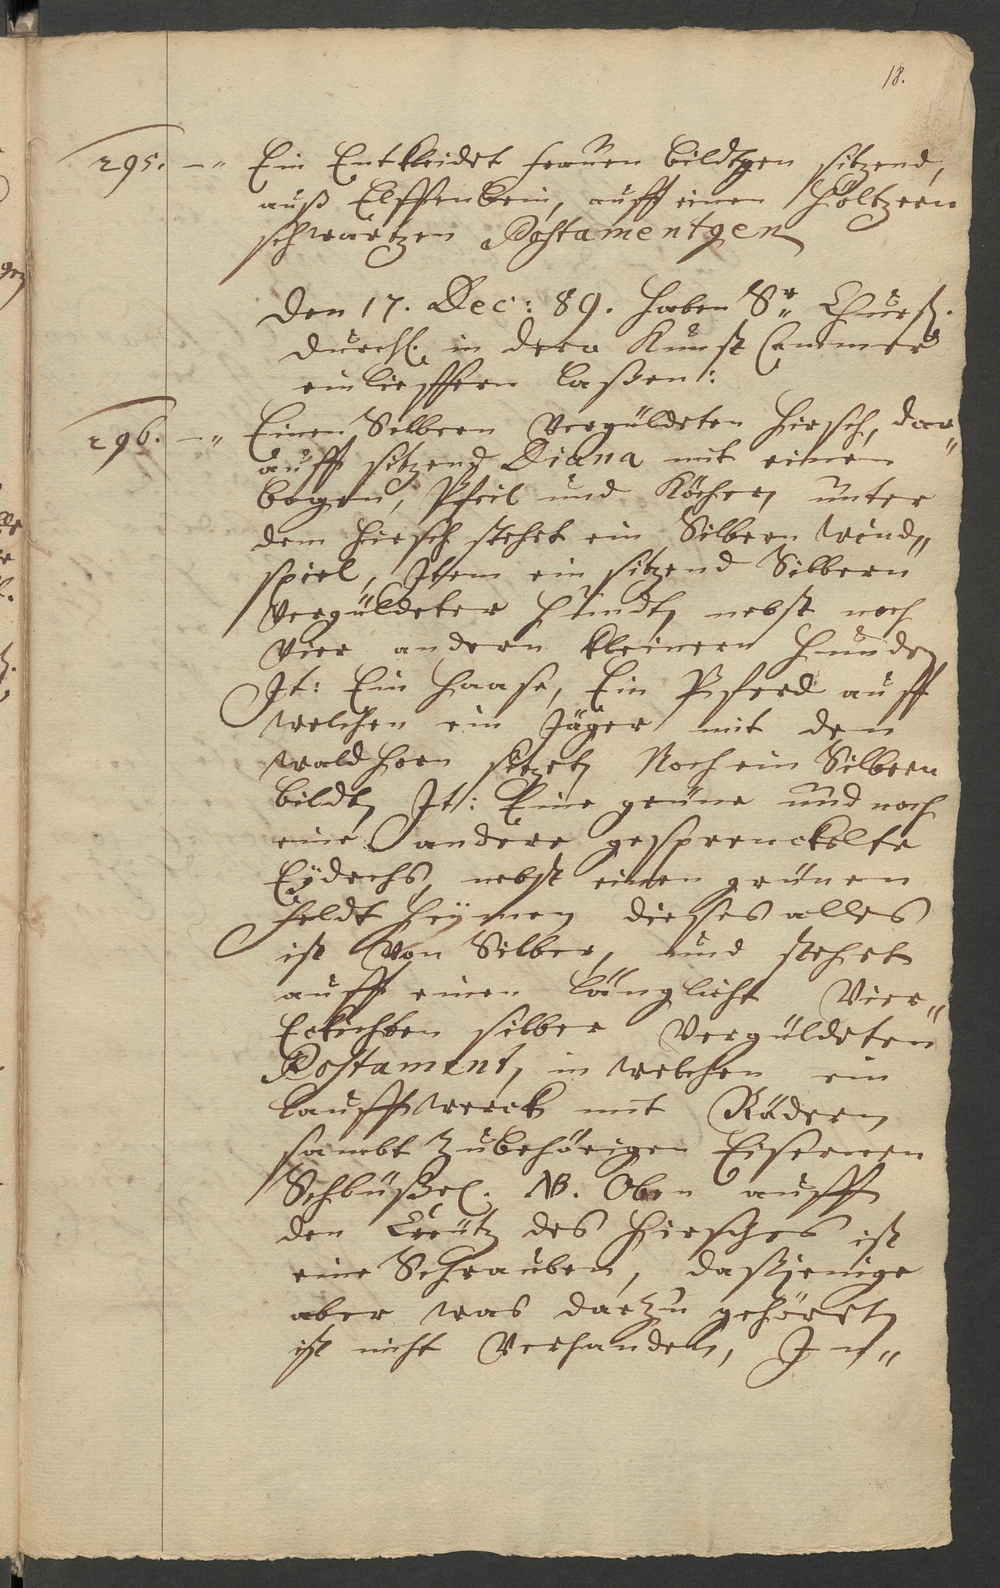 18.
295. —„ Ein Entkleidet frauen bildtgen sitzend,
auß Elffenbein, auff einen Höltzern
schwartzen Postamentgen
Den 17. Dec: 89. haben Sr. Churfl.
Durchl. in dero Kunst Cammer
einlieffern laßen:
296. —„ Einen Silbern Vergüldeten Hirsch, dar„
auff sitzend Diana mit einen
bogen, Pfeil und Köcher, unter
dem Hirsch stehet ein Silbern wind„
spiel, Item ein sitzend Silbern
Vergüldeter Hundt, nebst noch
Vier andern kleinern Hunde,
It: Ein Haase, Ein Pferd auff
welchen ein Jäger mit den
waldhorn sitzet, Noch ein Silbern
bildt, It: Eine grüne und noch
eine andere gesprenckelte
Eÿdechs, nebst einen grünen
feldt Heÿmen, dieses alles
ist Von Silber, und stehet
auff einen länglicht Vier„
Eckichten silber Vergüldeten
Postament, in welchen ein
lauffwerck mit Rädern,
sambt Zubehörigen Eisernen
Schlüßel. NB. Oben auff
den Creütz des Hirsches ist
eine Schrauben, dasjenige
aber was darzu gehöret,
ist nicht Verhanden, In„